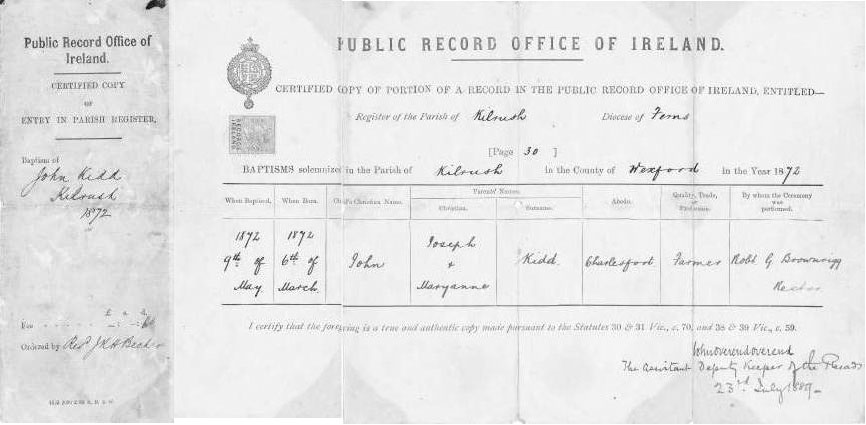 Public Record Office of
Ireland.
CERTIFIED COPY
OF
ENTRY IN PARISH REGISTER.
Baptism of
John Kidd
Kilrush
1872
£ s. d.
Fee
Ordered by Revd J
PUBLIC RECORD OFFICE OF IRELAND.
CERTIFIED COPY OF PORTION OF A RECORD IN THE PUBLIC RECORD OFFICE OF IRELAND, ENTITLED—
Register of the Parish of Kilrush Diocese of Ferns
[Page 30 ]
BAPTISMS solemnized in the Parish of Kilrush in the County of Wexford in the Year 1872
When Baptized. When Born. Christian Name. Parents' Names. Abode. Quality, Trade, or Profession. By whom the Ceremony was performed.
Christian. Surname.
1872 1872 Joseph
9th of 6th of John + Kidd Charlesfort Farmer Robt G Brownrigg
May March Maryanne Rector
I certify that the foregoing is a true and authentic copy made pursuant to the Statutes 30 & 31 Vic., c. 70, and 38 & 39 Vic., c. 59.
John Overend
The Assistant Deputy Keeper of the Records
23rd July 1889